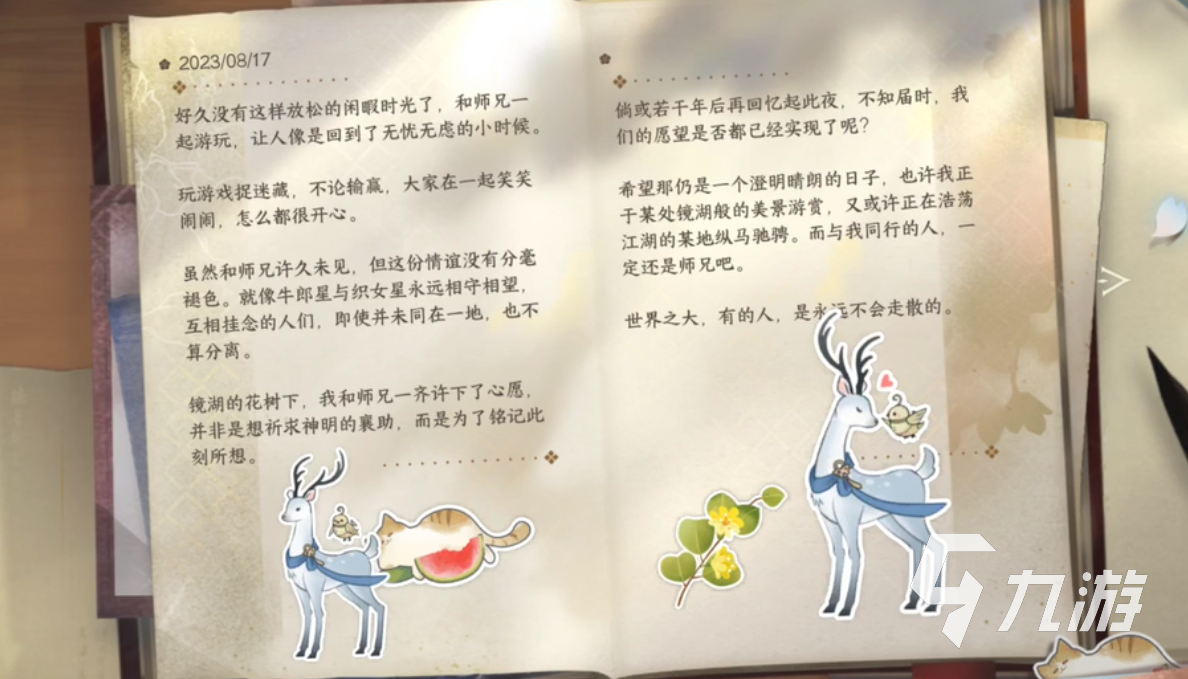 2023/08/17
好久没有这样放松的闲暇时光了，和师兄一
起游玩，让人像是回到了无忧无虑的小时候。
玩游戏捉迷藏，不论输赢，大家在一起笑笑
闹闹，怎么都很开心。
虽然和师兄许久未见，但这份情谊没有分毫
褪色。就像牛郎星与织女星永远相守相望，
互相挂念的人们，即使并未同在一地，也不
算分离。
镜湖的花树下，我和师兄一齐许下了心愿，
并非是想祈求神明的襄助，而是为了铭记此
刻所想。
倘或若干年后再回忆起此夜，不知届时，我
们的愿望是否都已经实现了呢？
希望那仍是一个澄明晴朗的日子，也许我正
于某处镜湖般的美景游赏，又或许正在浩荡
江湖的某地纵马驰骋。而与我同行的人，一
定还是师兄吧。
世界之大，有的人，是永远不会走散的。
九游